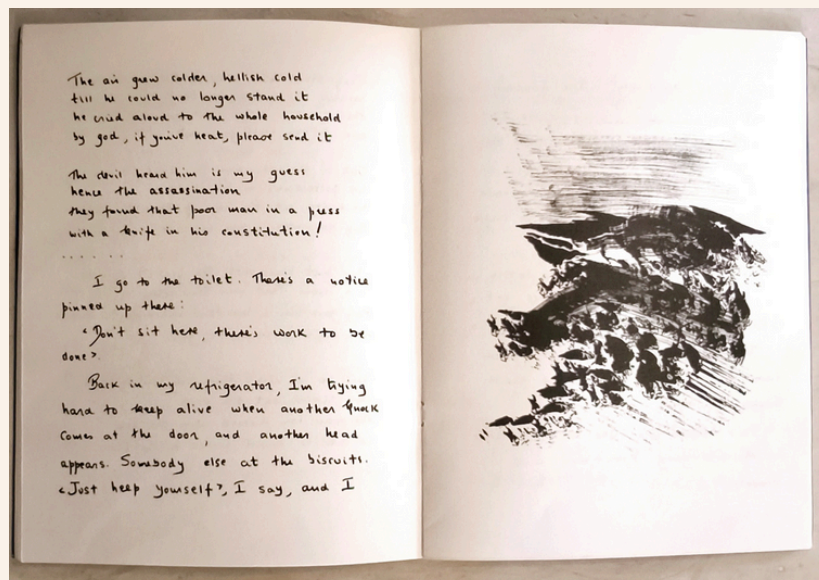 The air grew colder, hellish cold
till he could no longer stand it
he cried aloud to the whole household
by god, if you've heat, please send it
The devil heard him is my guess
hence the assassination
they found that poor man in a press
with a knife in his constitution!
. . . . . .
I go to the toilet. There's a notice
pinned up there:
‹Don't sit here, there's work to be
done›.
Back in my refrigerator, I'm trying
hard to keep alive when another knock
comes at the door, and another head
appears. Somebody else at the biscuits.
‹Just help yourself›, I say, and I